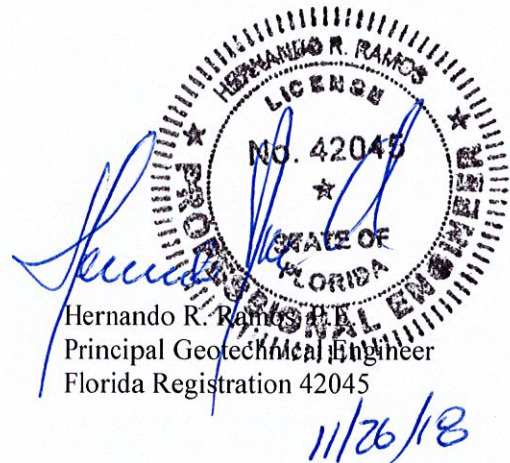 HERNANDO R. RAMOS
LICENSE
No. 42045
STATE OF
FLORIDA
PROFESSIONAL ENGINEER
Hernando R. Ramos, P.E.
Principal Geotechnical Engineer
Florida Registration 42045
11/26/18